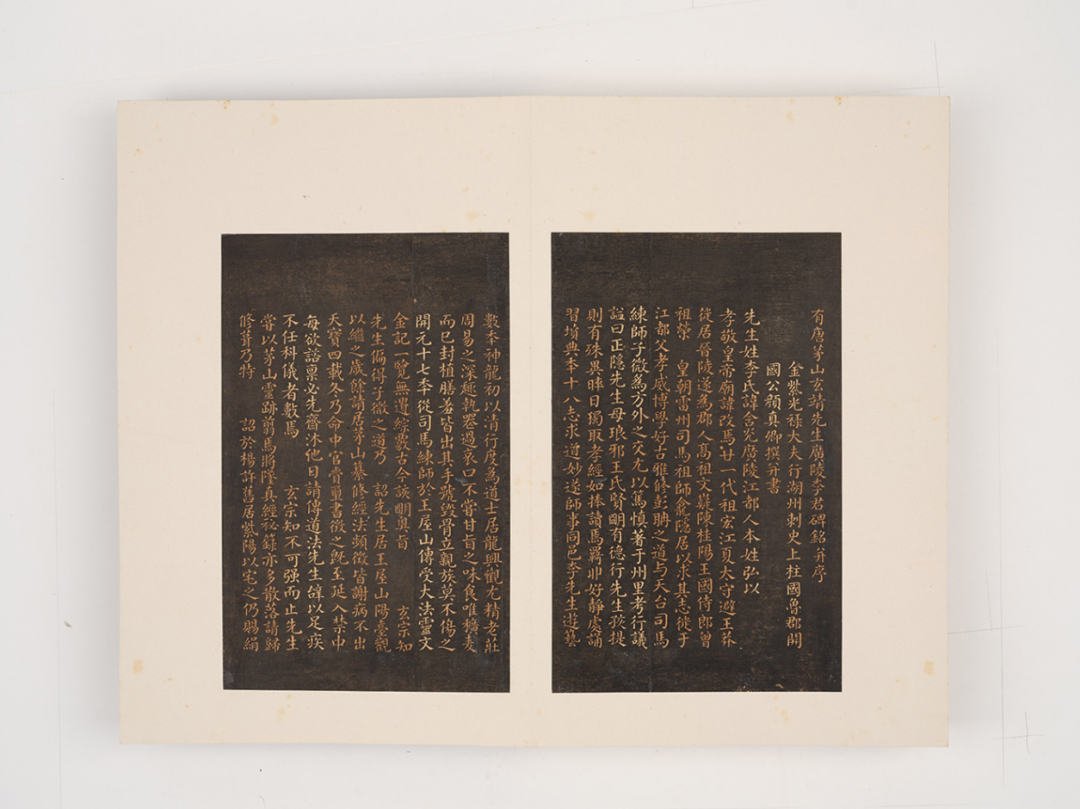 有唐茅山玄靖先生廣陵李君碑銘并序
金紫光祿大夫行湖州刺史上柱國魯郡開
國公顏真卿撰并書
先生姓李氏諱含光廣陵江都人本姓弘以
孝敬皇帝廟諱改焉廿一代祖宏江夏太守避王莽
徙居晉陵遂為郡人高祖文嶷陳桂陽王國侍郎曾
祖榮 皇朝雷州司馬祖師龕隱居以求其志徙于
江都父孝威博學好古雅修彭聃之道与天台司馬
練師子微為方外之交尤以篤慎著于州里考行議
謚曰正隱先生母琅邪王氏賢明有德行先生孩提
則有殊異晬日獨取孝經如捧讀焉羈丱好靜處誦
習墳典年十八志求道妙遂師事同邑李先生遊藝
數年神龍初以清行度為道士居龍興觀尤精老莊
周易之深趣執喪過哀口不嘗甘旨之味食唯穬麦
而已封植膳羞皆出其手號毀骨立親族莫不傷之
開元十七年從司馬練師於王屋山傳受大法靈文
金記一覽無遺綜覈古今該明奧旨 玄宗知
先生偏得子微之道乃 詔先生居王屋山陽臺觀
以繼之歲餘請居茅山纂修經法頻徵皆謝病不出
天寶四載冬乃命中官賫璽書徵之既至延入禁中
每欲諮稟必先齋沐他日請傳道法先生辞以足疾
不任科儀者數焉 玄宗知不可强而止先生
嘗以茅山靈跡翦焉將墜真經祕籙亦多散落請歸
修葺乃特 詔於楊許舊居紫陽以宅之仍賜絹